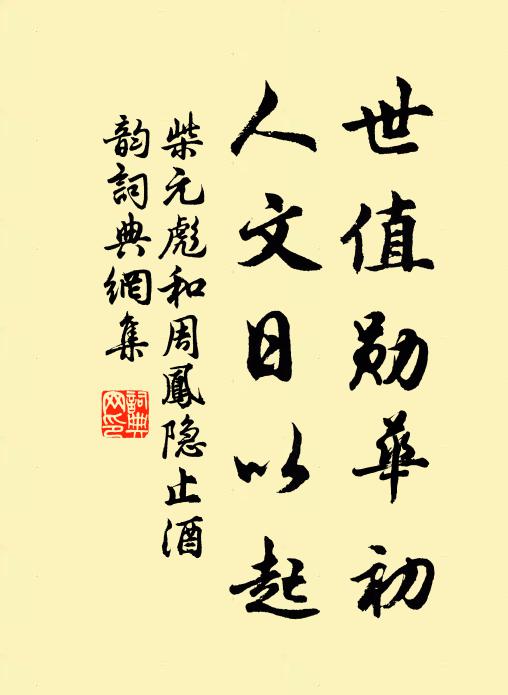 世值勋华初
人文日以起
柴元彪和周鳳隐止酒
韵詞典網集
詞典
网印